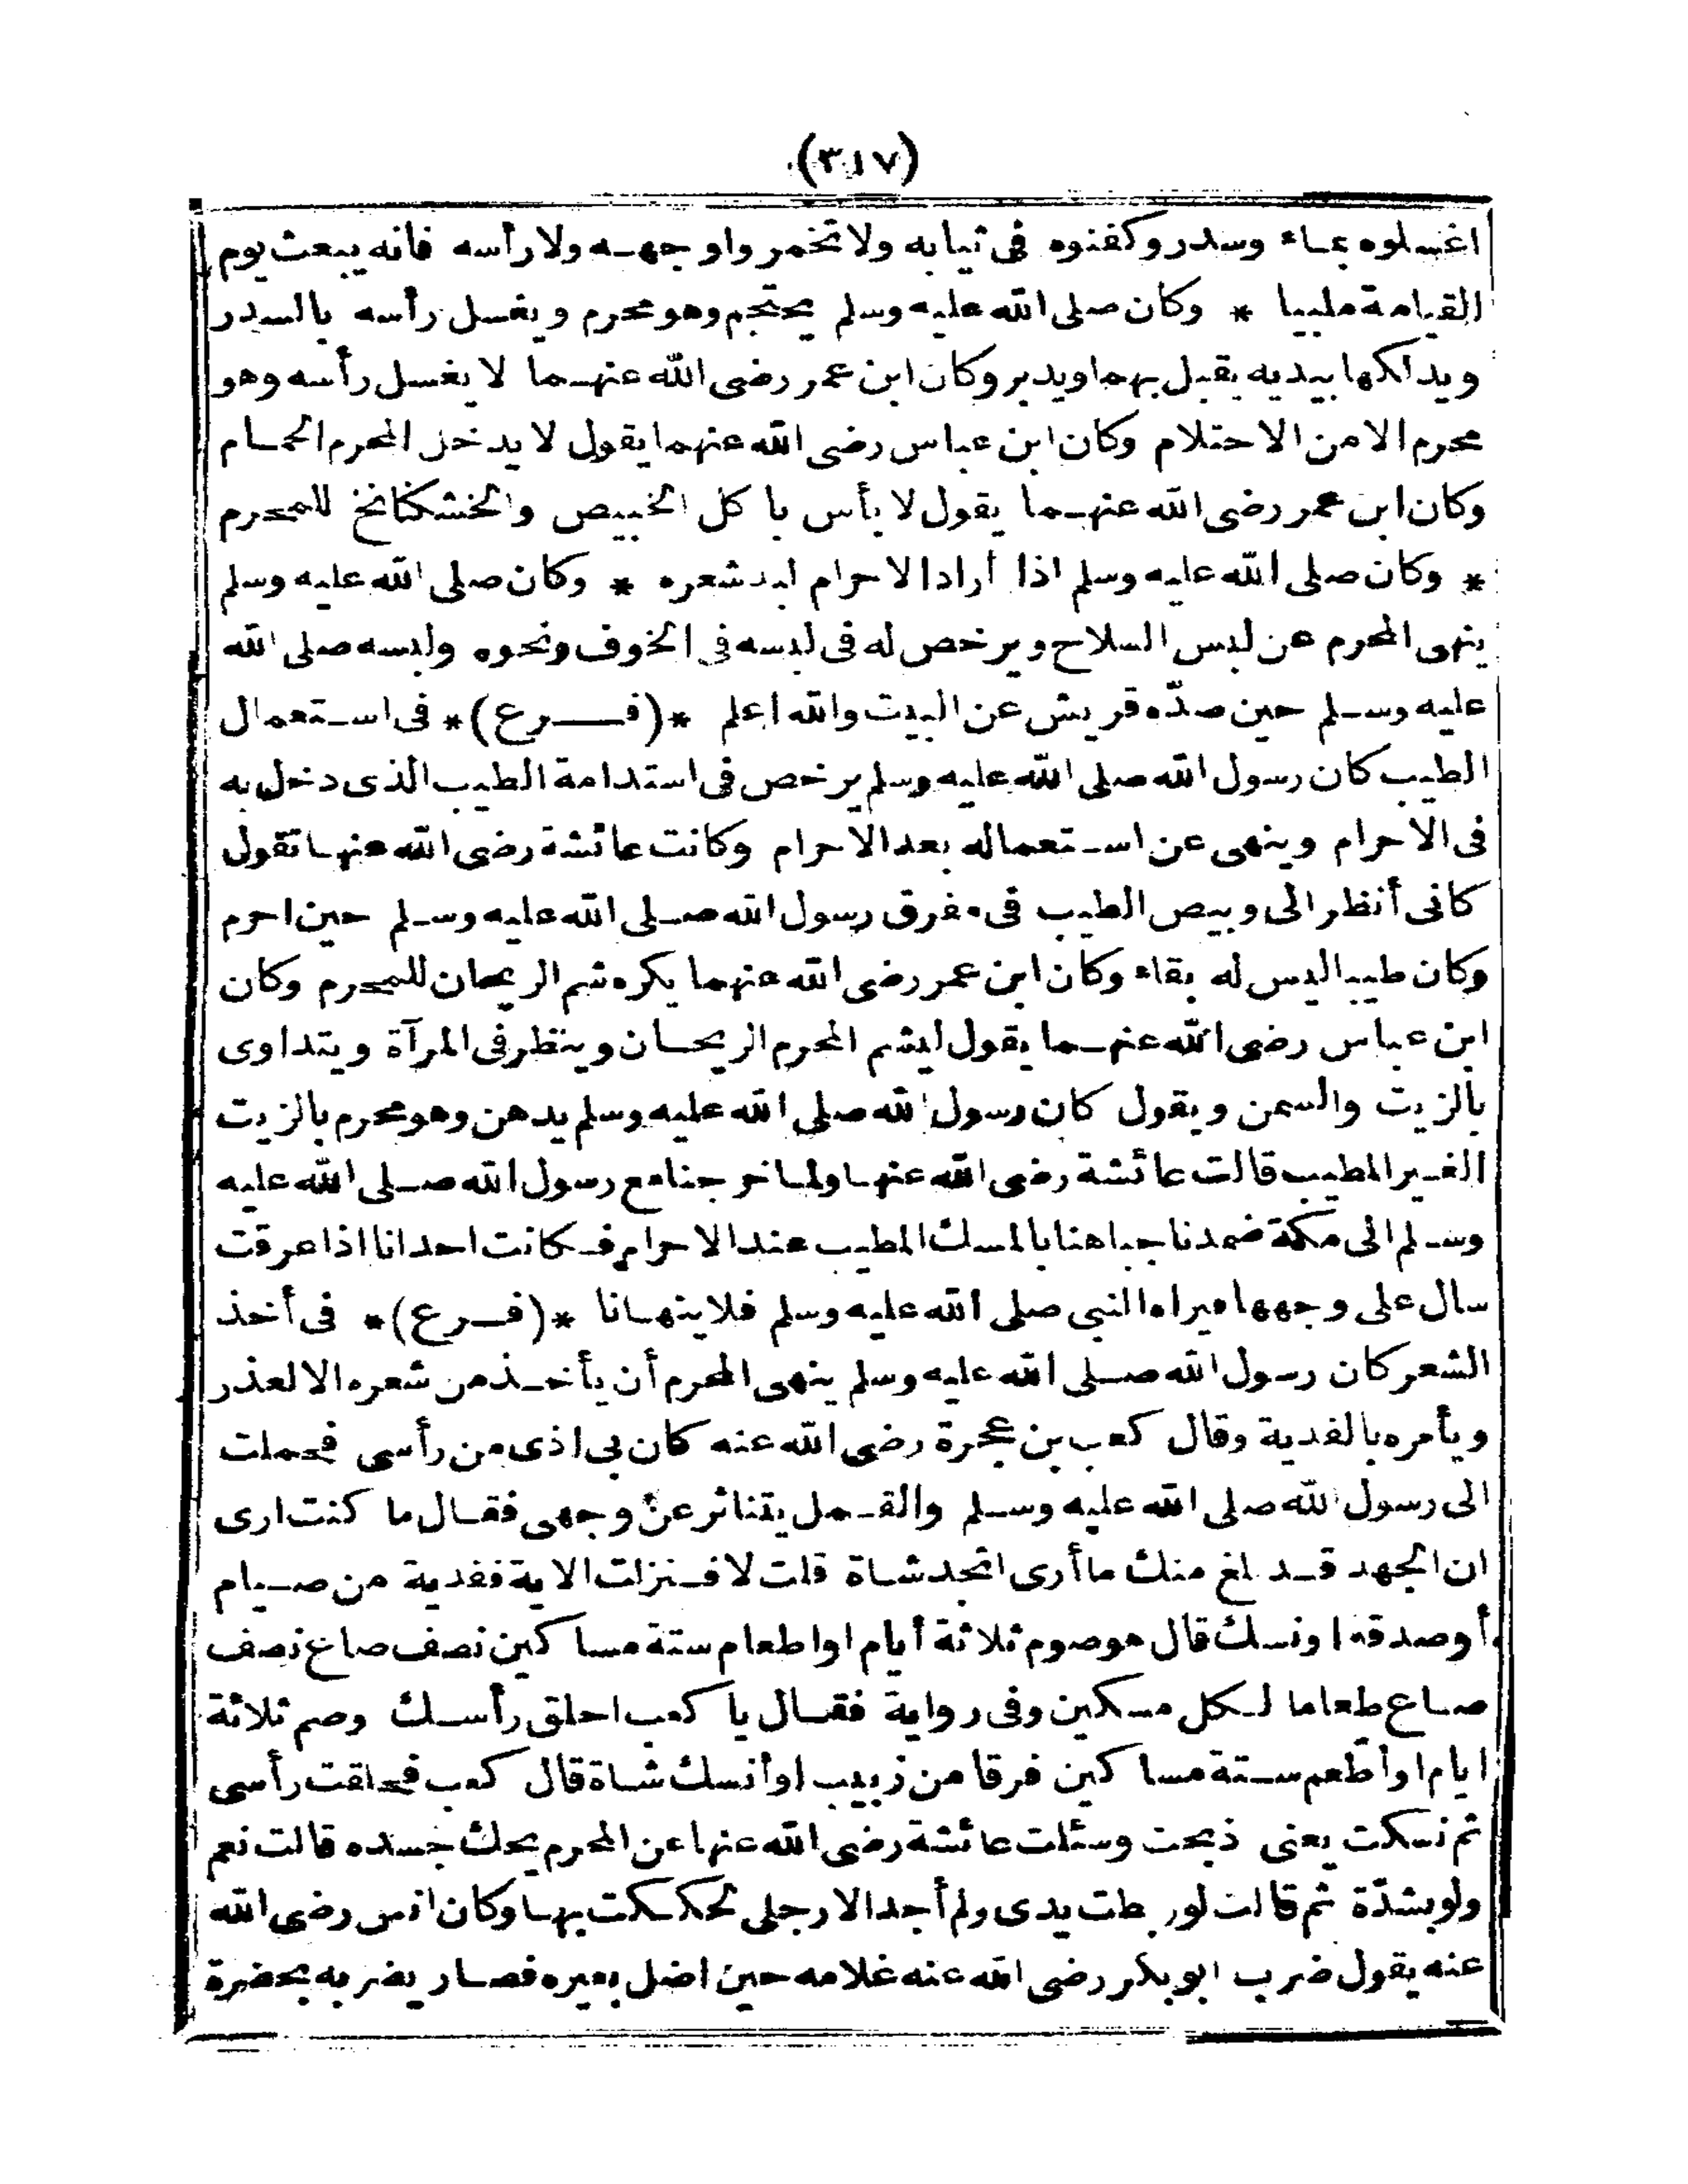 (٣١٧)
اغسلوه بماء وسدر وكفنوه فى ثيابه ولا تخمروا وجهه ولا رأسه فانه يبعث يوم
القيامة ملبيا * وكان صلى الله عليه وسلم يحتجم وهو محرم ويغسل رأسه بالسدر
ويدلكها بيديه يقبل بهما ويدبر وكان ابن عمر رضى الله عنهما لا يغسل رأسه وهو
محرم الا من الاحتلام وكان ابن عباس رضى الله عنهما يقول لا يدخل المحرم الحمام
وكان ابن عمر رضى الله عنهما يقول لا بأس باكل الخبيص والخشكنانخ للمحرم
* وكان صلى الله عليه وسلم اذا أراد الاحرام لبد شعره * وكان صلى الله عليه وسلم
ينهى المحرم عن لبس السلاح ويرخص له فى لبسه فى الخوف ونحوه ولبسه صلى الله
عليه وسلم حين صدّه قريش عن البيت والله اعلم *(فرع)* فى استعمال
الطيب كان رسول الله صلى الله عليه وسلم يرخص فى استدامة الطيب الذى دخل به
فى الاحرام وينهى عن استعماله بعد الاحرام وكانت عائشة رضى الله عنها تقول
كانى أنظر الى وبيص الطيب فى مفرق رسول الله صلى الله عليه وسلم حين احرم
وكان طيبا ليس له بقاء وكان ابن عمر رضى الله عنهما يكره شم الريحان للمحرم وكان
ابن عباس رضى الله عنهما يقول ليشم المحرم الريحان وينظر فى المرآة ويتداوى
بالزيت والسمن ويقول كان رسول الله صلى الله عليه وسلم يدهن وهو محرم بالزيت
الغير المطيب قالت عائشة رضى الله عنها ولما خرجنا مع رسول الله صلى الله عليه
وسلم الى مكة ضمدنا جباهنا بالمسك المطيب عند الاحرام فكانت احدانا اذا عرقت
سال على وجهها فيراه النبي صلى الله عليه وسلم فلا ينهانا *(فرع)* فى أخذ
الشعر كان رسول الله صلى الله عليه وسلم ينهى المحرم أن يأخذ من شعره الا لعذر
ويأمره بالفدية وقال كعب بن عجرة رضى الله عنه كان بى اذى من رأسى فحملت
الى رسول الله صلى الله عليه وسلم والقمل يتناثر عن وجهى فقال ما كنت ارى
ان الجهد قد بلغ منك ما أرى اتجد شاة قلت لا فنزلت الاية ففدية من صيام
أو صدقة او نسك قال هو صوم ثلاثة أيام او اطعام ستة مساكين نصف صاع نصف
صاع طعاما لكل مسكين وفى رواية فقال يا كعب احلق رأسك وصم ثلاثة
ايام او أطعم ستة مساكين فرقا من زبيب او أنسك شاة قال كعب فحلقت رأسى
ثم نسكت يعنى ذبحت وسئلت عائشة رضى الله عنها عن المحرم يحك جسده قالت نعم
ولو بشدّة ثم قالت لو ربطت يدى ولم أجد الا رجلى لحككت بها وكان انس رضى الله
عنه يقول ضرب ابو بكر رضى الله عنه غلامه حين اضل بعيره فصار يضربه بحضرة